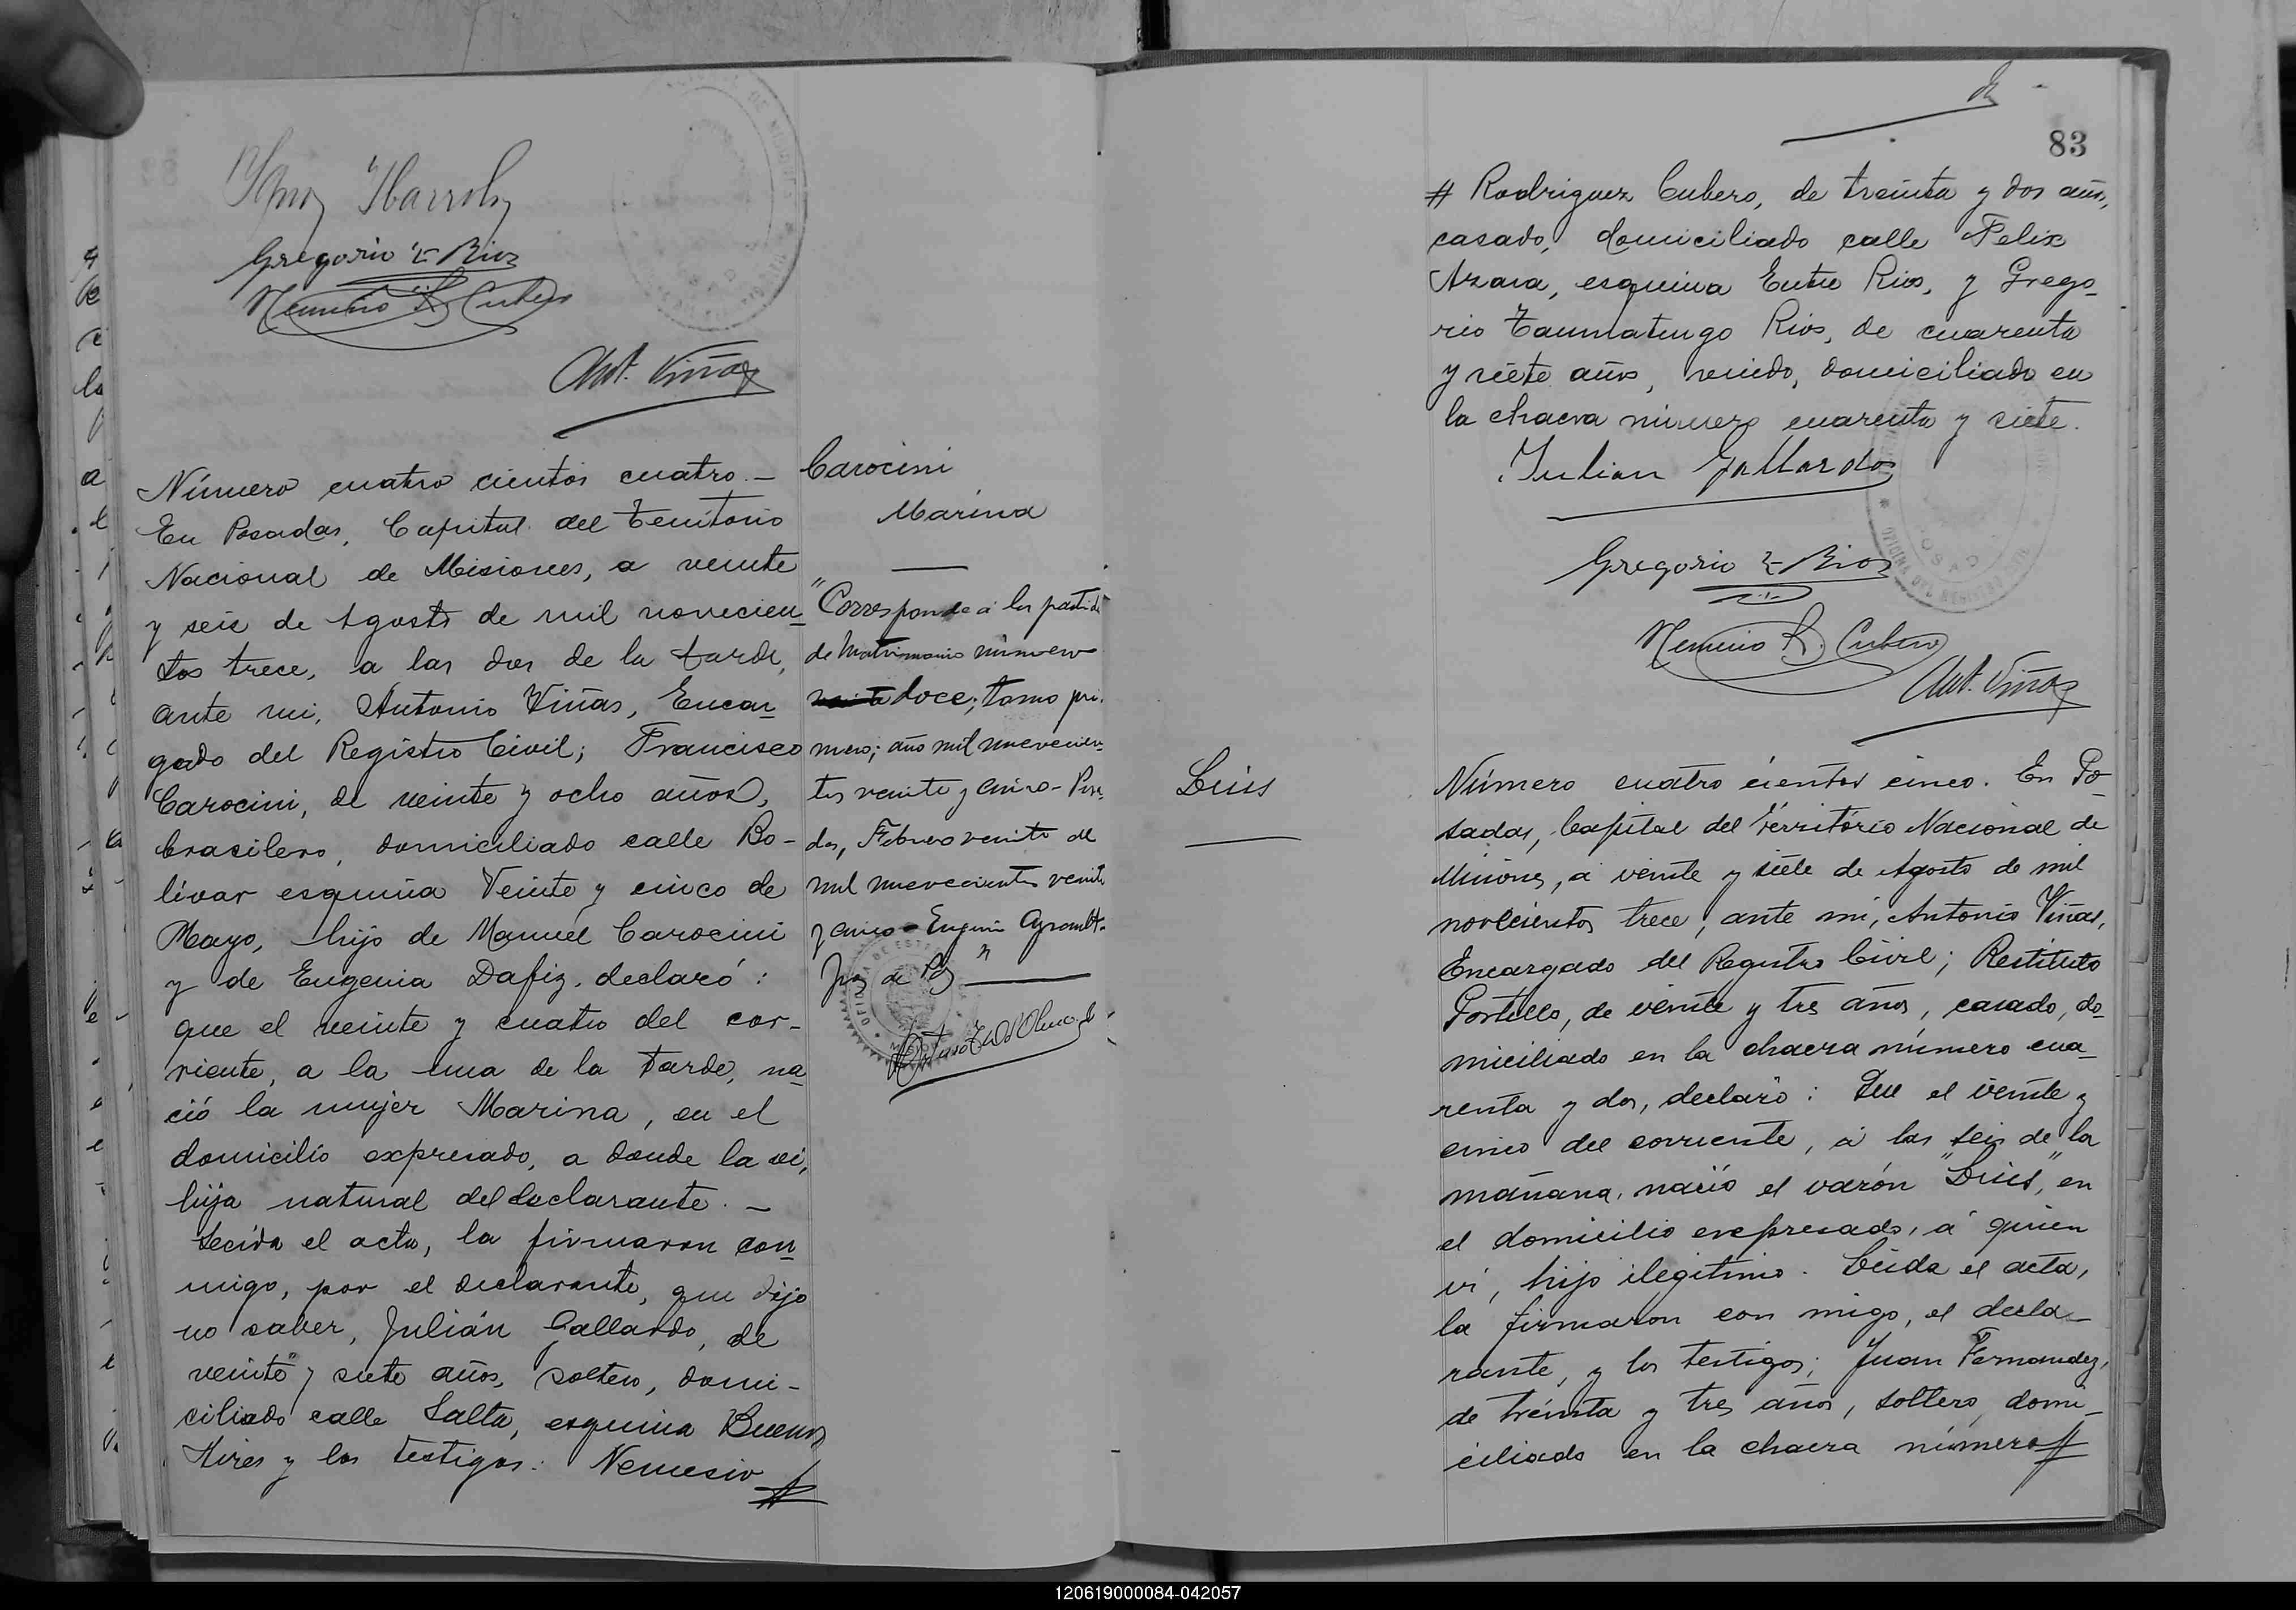 Gregorio T Rios
Nemesio R. Cubero
Ant. Viñas
Número cuatro cientos cuatro.—
En Posadas, Capital del Territorio
Nacional de Misiones, a veinte
y seis de Agosto de mil novecien-
tos trece, a las dos de la tarde,
ante mi, Antonio Viñas, Encar-
gado del Registro Civil; Francisco
Carocini, de veinte y ocho años,
brasilero, domiciliado calle Bo-
lívar esquina Veinte y cinco de
Mayo, hijo de Manuel Carocini
y de Eugenia Dafiz, declaró:
que el veinte y cuatro del cor-
riente, a la una de la tarde, na-
ció la mujer Marina, en el
domicilio expresado, a donde la vi,
hija natural del declarante.—
Leida el acta, la firmaron con
migo, por el declarante, que dijo
no saber, Julián Gallardo, de
veinte y siete años, soltero, domi-
ciliado calle Salta, esquina Buenos
Aires y los testigos: Nemesio #
Carocini
Marina
"Corresponde a la partida
de Matrimonio número
doce; tomo pri-
mero; año mil novecien-
tos veinte y cinco- Posa-
das, Febrero veinte de
mil novecientos veinte
y cinco-
Juez de Paz"
83
# Rodriguez Cubero, de treinta y dos años,
casado, domiciliado calle Felix
Azara, esquina Entre Rios, y Grego-
rio Taumatungo Rios, de cuarenta
y siete años, viudo, domiciliado en
la chacra número cuarenta y siete.
Julian Gallardo
Gregorio T Rios
Nemesio R. Cubero
Ant. Viñas
Luis
Número cuatro cientos cinco. En Po-
sadas, Capital del Território Nacional de
Misiones, á veinte y siete de Agosto de mil
novecientos trece, ante mi, Antonio Viñas,
Encargado del Registro Civil; Restituto
Portillo, de veinte y tres años, casado, do-
miciliado en la chacra número cua-
renta y dos, declaró: Que el veinte y
cinco del corriente, á las seis de la
mañana, nació el varón "Luis", en
el domicilio expresado, á quien
vi, hijo ilegitimo. Leida el acta,
la firmaron con migo, el decla-
rante, y los testigos; Juan Fernandez,
de treinta y tres años, soltero, domi-
ciliado en la chacra número #
120619000084-042057